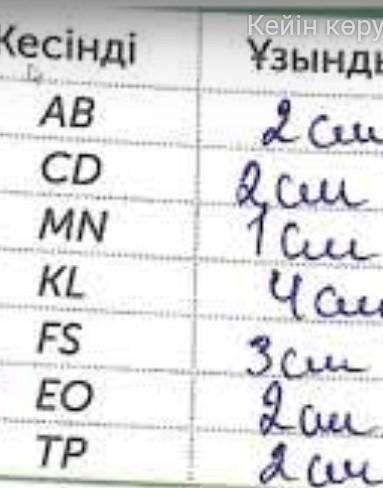 Кейін көру
Кесінді Ұзынды
AB 2 см
CD 2 см
MN 1 см
KL 4 см
FS 3 см
EO 2 см
TP 2 см